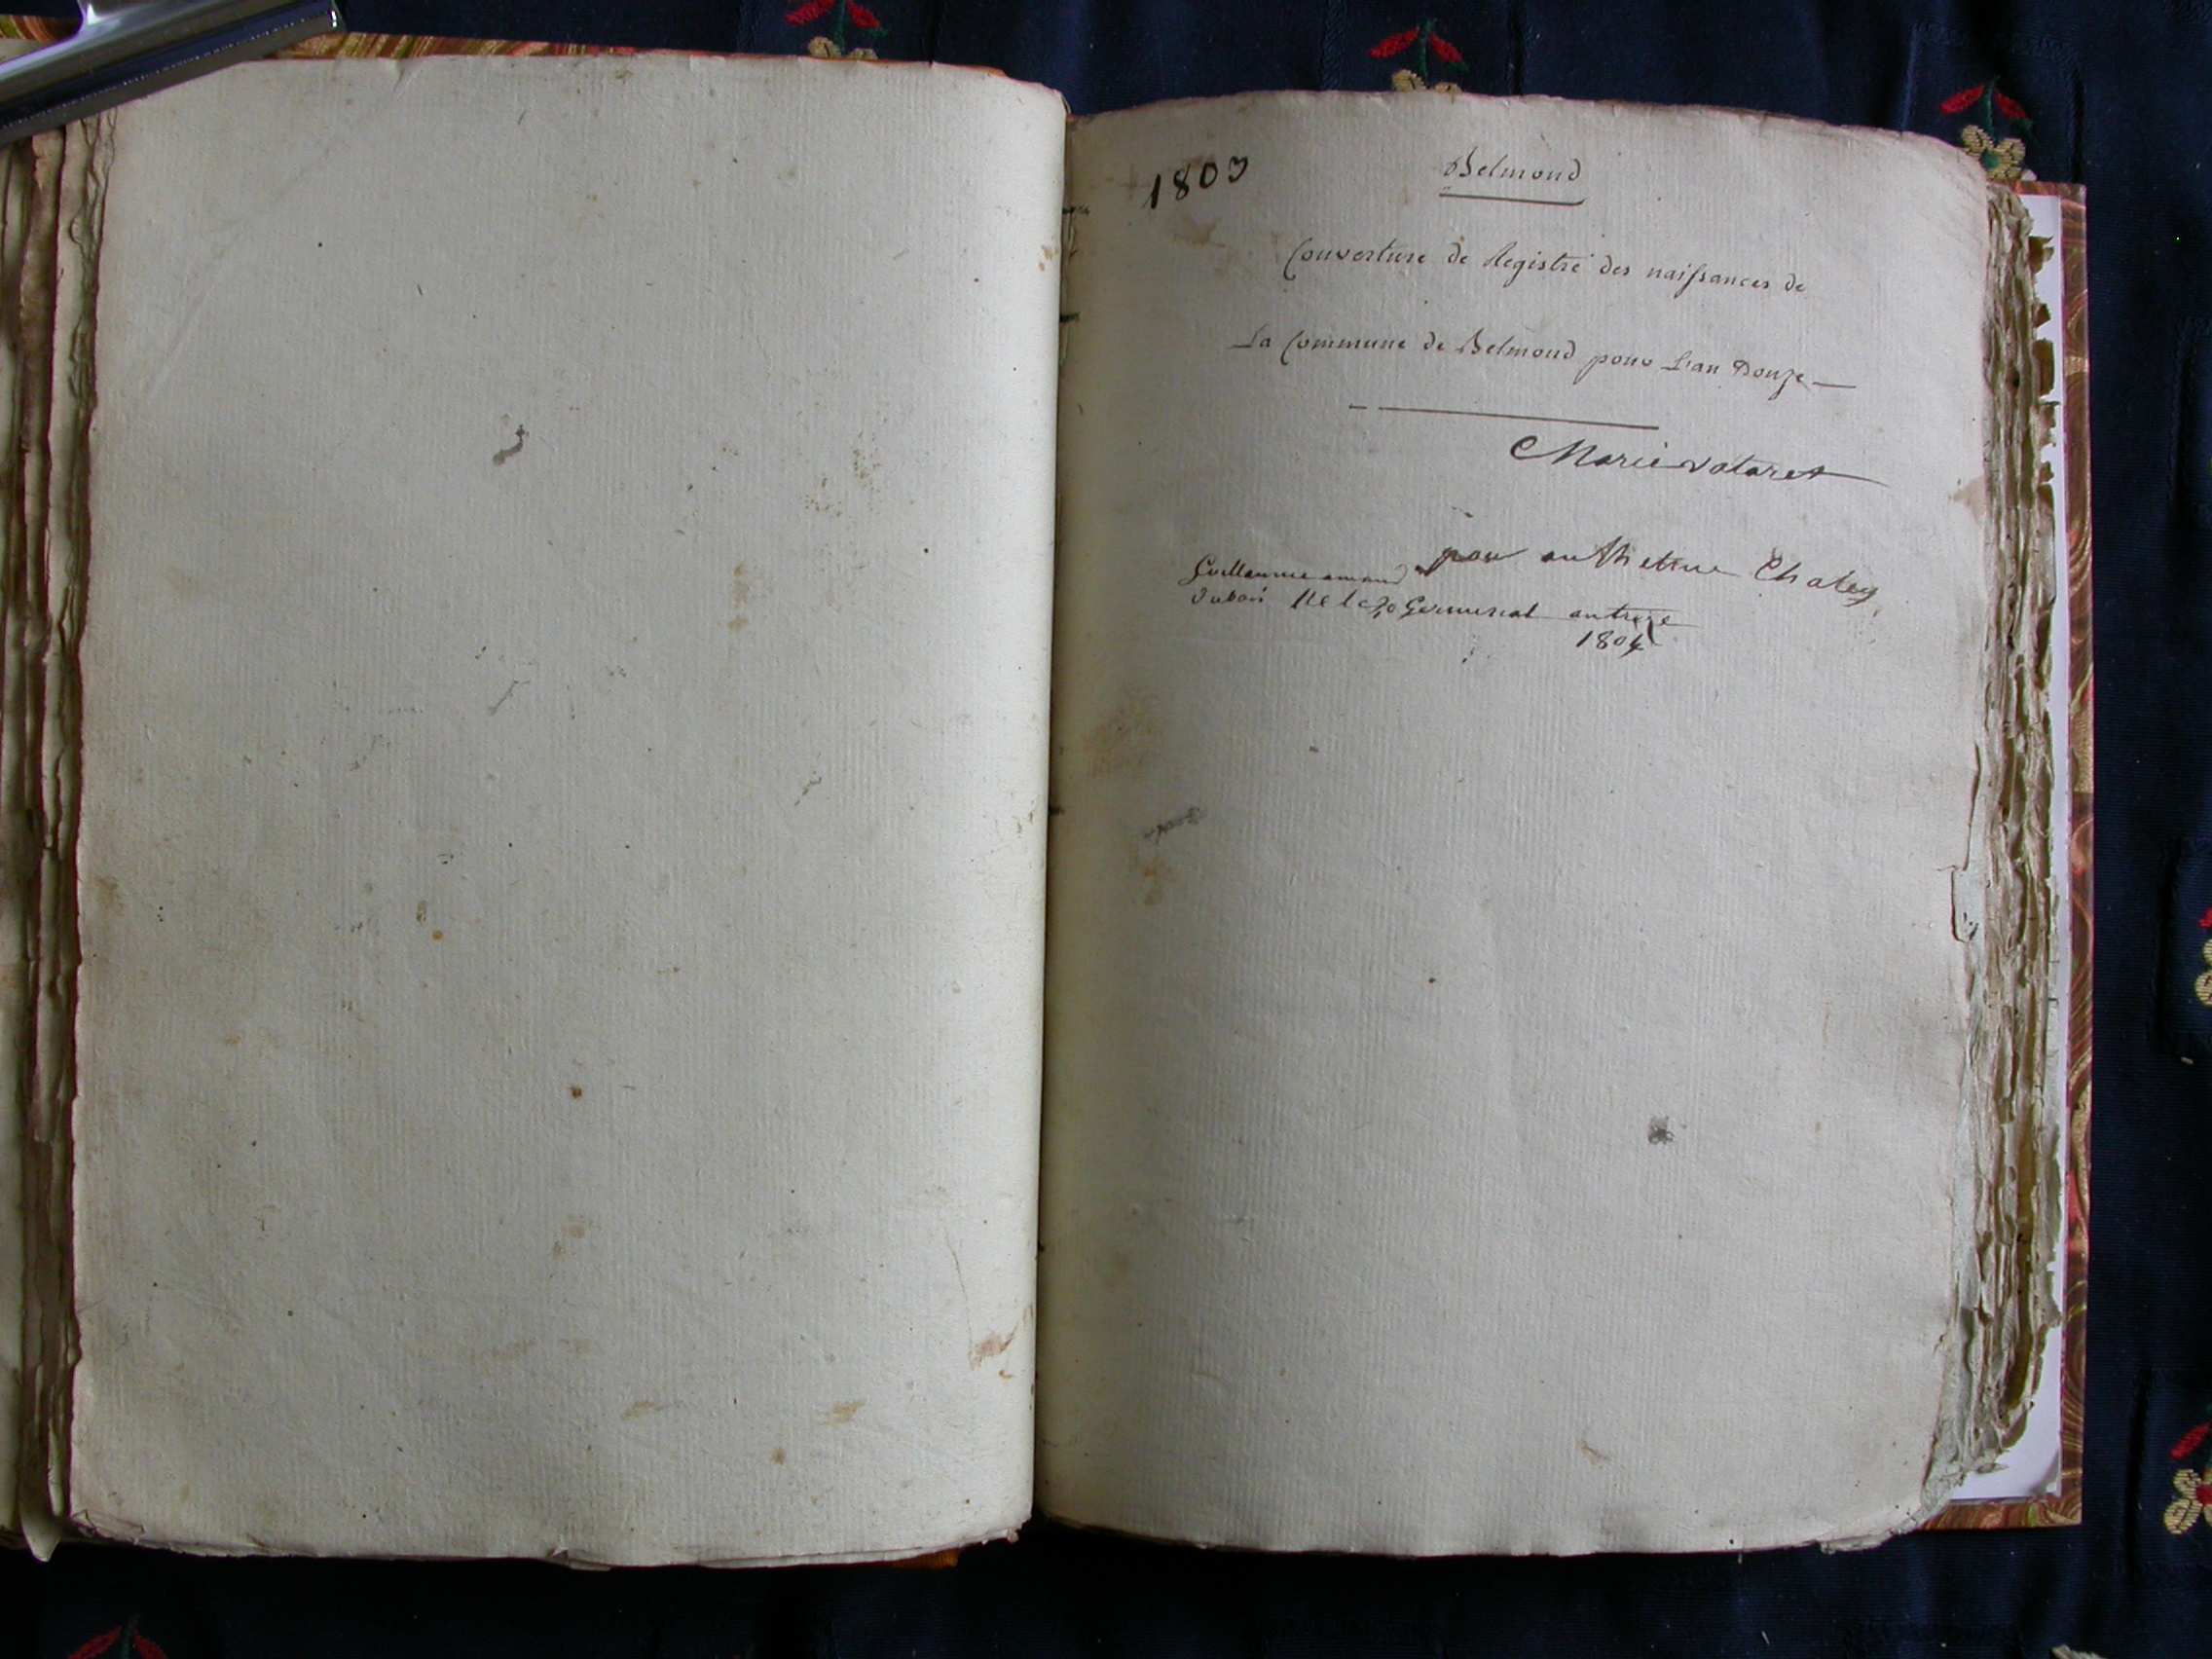 1803
Belmond
Couverture de Registre des naissances de
La Commune de Belmond pour L'an Douze
Marie
pour Chaley
Guillaume amand
dubois né le 20 Germinal an treize
1804